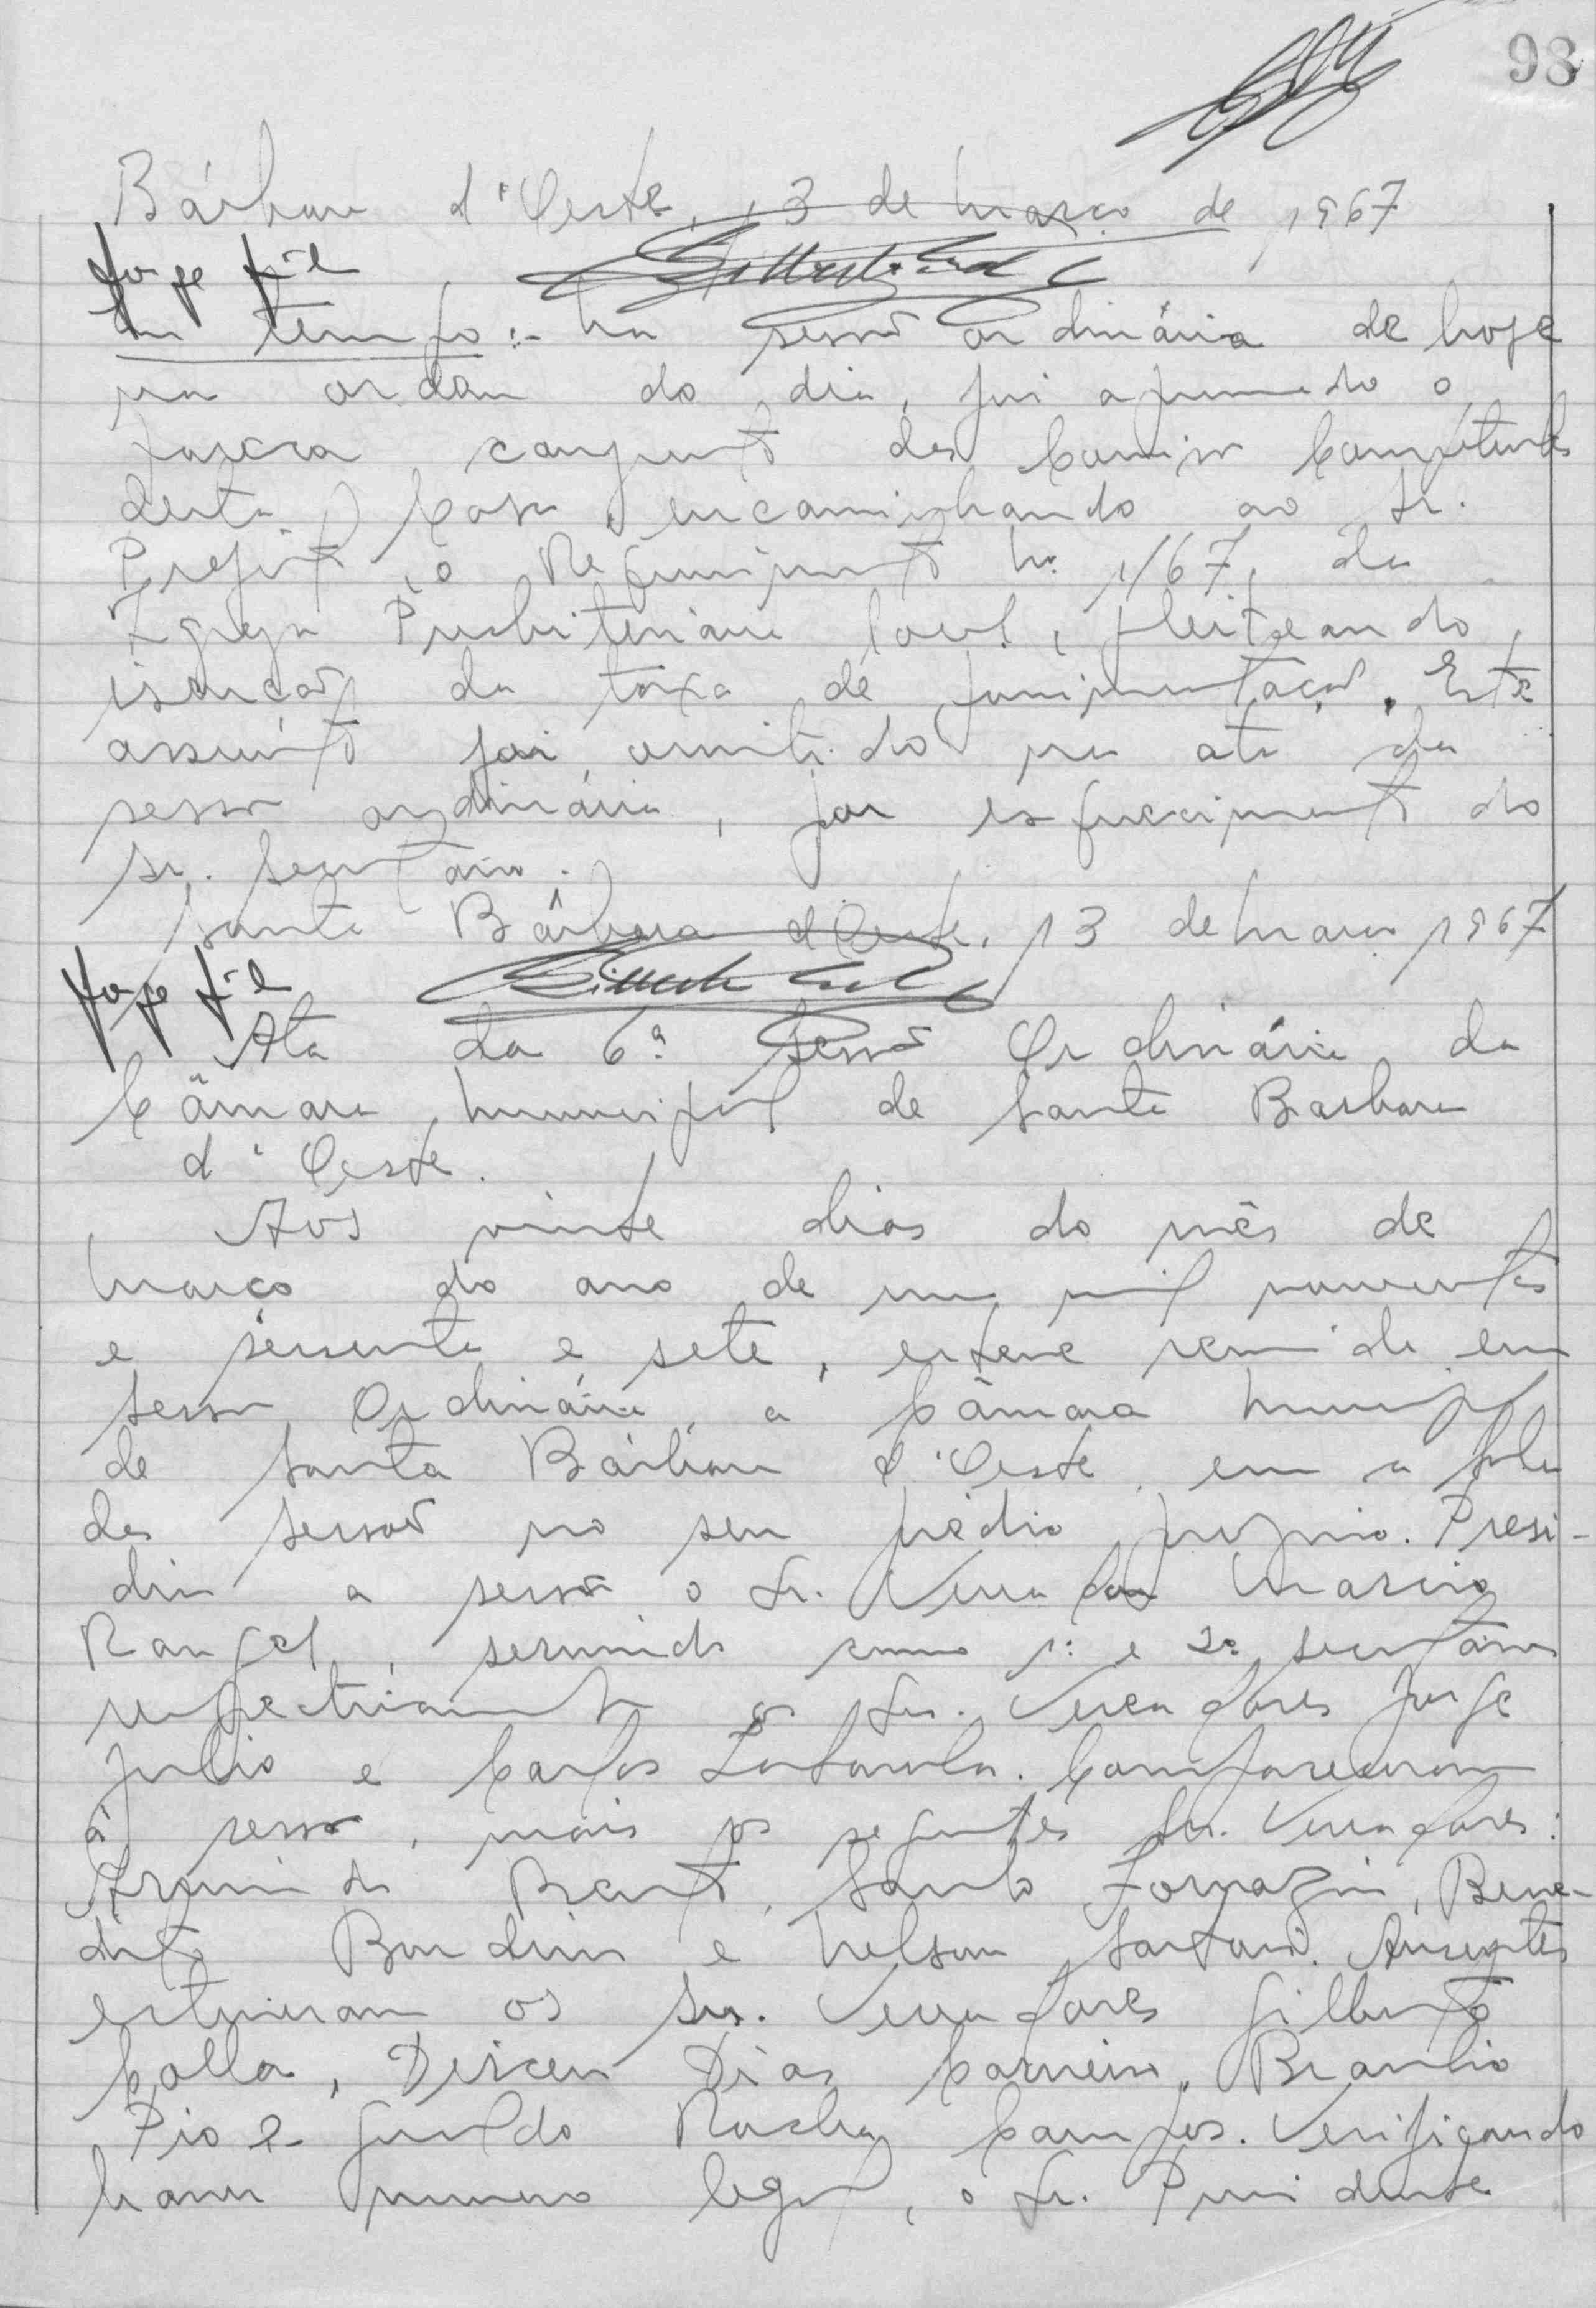 98
Bárbara d'Oeste, 13 de março de 1967
Em tempo:- Na sessão ordinária de hoje
na ordem do dia, foi apresentado o
parecer conjunto das Comissões Competentes
desta Casa, encaminhando ao Sr.
Prefeito, o Requerimento nº 1/67, da
Igreja Presbiteriana local, pleiteando
isenção da taxa de pavimentação. Este
assunto foi omitido na ata da
sessão ordinária, por esquecimento do
sr. secretário.
Santa Bárbara d'Oeste, 13 de março 1967
Ata da 6ª Sessão Ordinária da
Câmara Municipal de Santa Barbara
d'Oeste.
Aos vinte dias do mês de
março do ano de um mil novecentos
e sessenta e sete, esteve reunida em
sessão Ordinária, a Câmara Municipal
de Santa Bárbara d'Oeste, em a sala
das sessões no seu prédio próprio. Presi-
diu a sessão o Sr. Vereador Marcio
Rangel, servindo como 1º e 2º secretários
respectivamente os Srs. Vereadores Jorge
Julio e Carlos. Compareceram
à sessão, mais os seguintes Srs. Vereadores:
Arminda Bento, Santo Fornazin, Bene-
dito e Nelson. Ausentes
estiveram os srs. Vereadores Gilberto
Colla, Dirceu Dias Carneiro, Braulio
Pio e Geraldo Rocha Campos. Verificando
haver numero legal, o Sr. Presidente